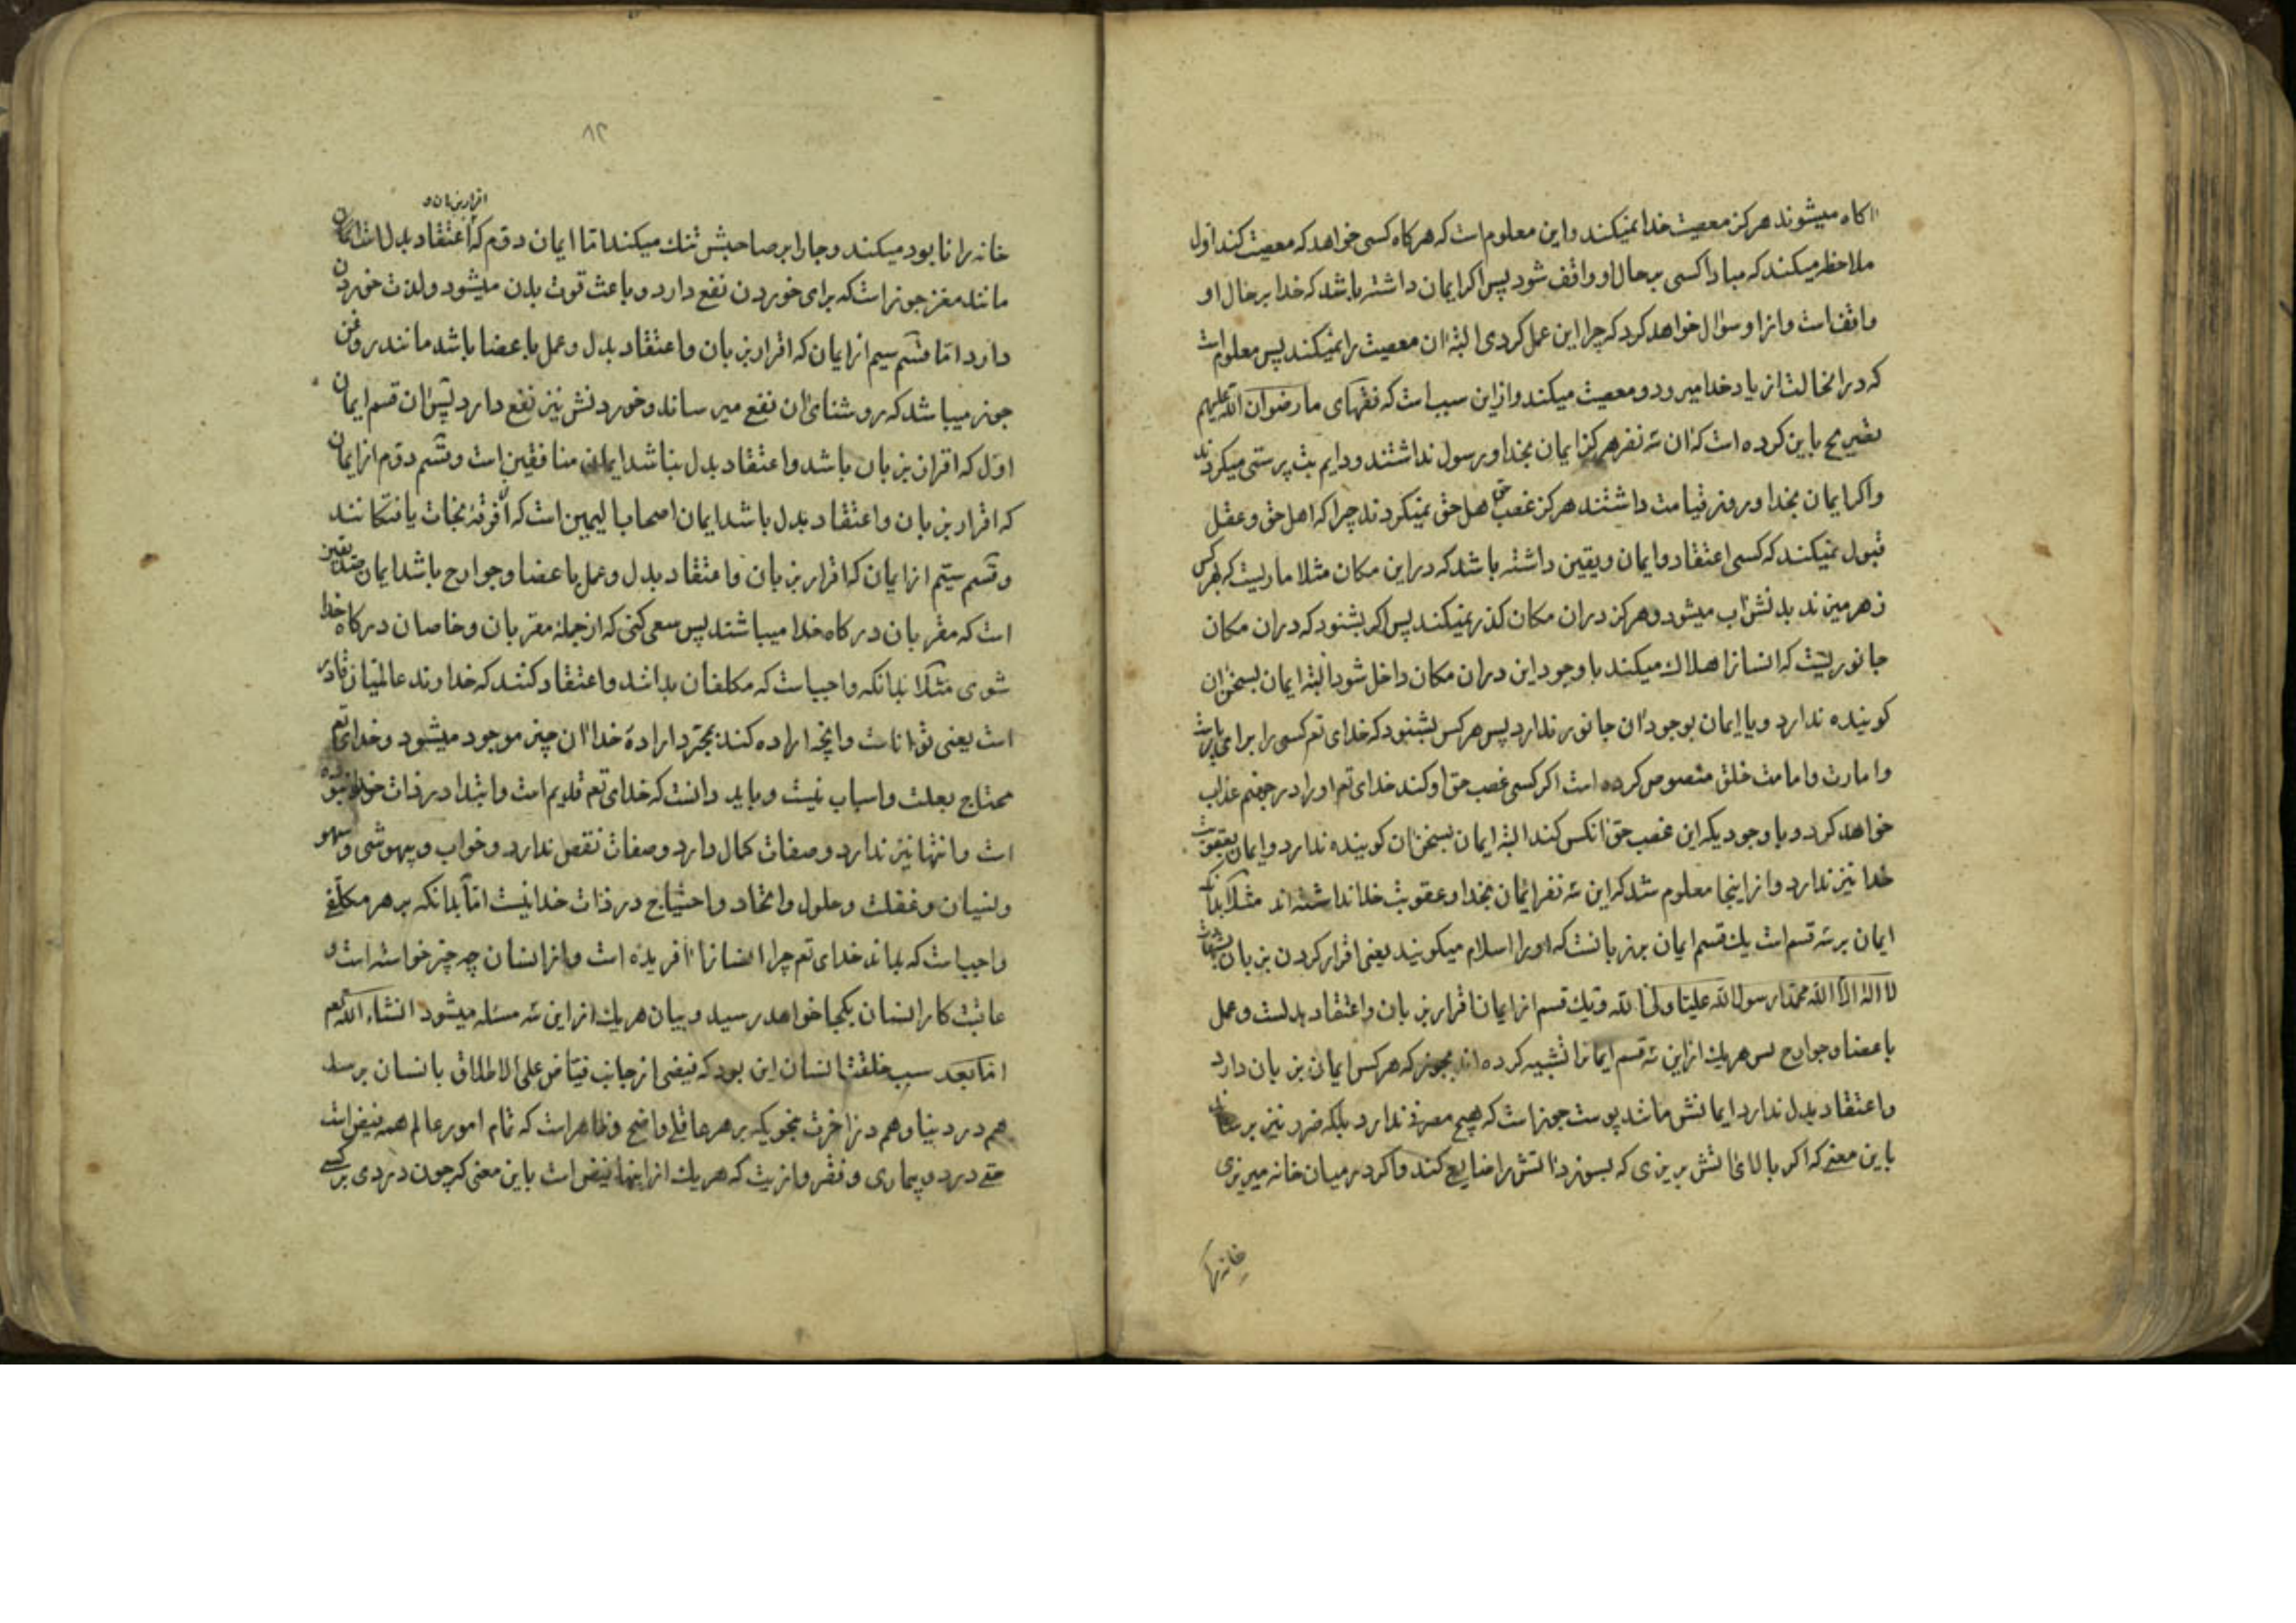 اکاه میشوند هرکز معصیت خدا نمیکنند واین معلوم است که هرکاه کسی خواهد که معصیت کند اول
ملاحظه میکند که مبادا کسی بر حال او واقف شود پس اکر ایمان داشته باشد که خدا بر حال او
واقف است واز او سؤال خواهد کرد که چرا این عمل کردی البته ان معصیت را نمیکند پس معلوم است
که در انحالت از یاد خدا میرود و معصیت میکند وازاین سبب است که فقهای ما رضوان الله علیهم
تصریح باین کرده است که ان سه نفر هرکز ایمان بخدا ورسول نداشتند ودایم بت پرستی میکردند
واکر ایمان بخدا وروز قیامت داشتند هرکز غصب حق اهل حق نمیکردند چرا که اهل حق وعقل
قبول نمیکنند که کسی اعتقاد وایمان ویقین داشته باشد که در این مکان مثلا ماریست که هرکس
زهر میزند بدنش اب میشود وهرکز در ان مکان کذر نمیکند پس اکر بشنود که در ان مکان
جانوریست که انسانرا هلاک میکند با وجود این در ان مکان داخل شود البته ایمان بسخن ان
کوینده ندارد ویا ایمان بوجود ان جانور ندارد پس هرکس بشنود که خدای تع کسی را برای
وامارت وامامت خلق منصوص کرده است اکر کسی غصب حق او کند خدای تع اورا در جهنم عذاب
خواهد کرد وبا وجودیکه این غصب حق انکس کند البته ایمان بسخن ان کوینده ندارد وایمان بعقوبت
خدا نیز ندارد واز اینجا معلوم شد که این سه نفر ایمان بخدا وعقوبت خدا نداشته اند مثلا بدانکه
ایمان بر سه قسم است یک قسم ایمان بزبانست که اورا اسلام میکویند یعنی اقرار کردن بزبان بشهادت
لا اله الا الله محمد رسول الله علیا ولی الله ویک قسم از ایمان اقرار بزبان واعتقاد بدلست وعمل
باعضا وجوارح پس هریک ازاین سه قسم ایمانرا تشبیه کرده اند بجوز که هرکس ایمان بزبان دارد
واعتقاد بدل ندارد ایمانش مانند پوست جوز است که هیچ مصرف ندارد بلکه ضرر نیز برساند
باین معنی که اکر بالای اتش بریزی که بسوزد اتش را ضایع کند واکر در میان خانه میریزی
خانه را
۸۲
اقرار بزبان و
خانه را نابود میکند وجارا بر صاحبش تنک میکند اما ایمان دوم که اعتقاد بدل است ان
مانند مغز جوز است که برای خوردن نفع دارد وباعث قوت بدن میشود ولذت خوردن
دارد اما قسم سیم از ایمان که اقرار بزبان واعتقاد بدل وعمل باعضا باشد مانند روغن
جوز میباشد که روشنائی ان نفع میرساند وخوردنش نیز نفع دارد پس ان قسم ایمان
اول که اقرار بزبان باشد واعتقاد بدل نباشد ایمان منافقین است وقسم دوم از ایمان
که اقرار بزبان واعتقاد بدل باشد ایمان اصحاب الیمین است که فرقهٔ نجات یافتکانند
وقسم سیم از ایمان که اقرار بزبان واعتقاد بدل وعمل باعضا وجوارح باشد ایمان
است که مقربان درکاه خدا میباشند پس سعی کنی که از جملهٔ مقربان وخاصان درکاه خدا
شوی مثلا بدانکه واجب است که مکلفان بدانند واعتقاد کنند که خداوند عالمیان قادر
است یعنی توانا است وانچه اراده کند بمجرد ارادهٔ خدا ان چیز موجود میشود وخدای تع
محتاج بعلت واسباب نیست وباید دانست که خدای تع قدیم است وابتدا در ذات خدا نبوده
است وانتها نیز ندارد وصفات کمال دارد وصفات نقص ندارد وخواب وبیهوشی وسهو
ونسیان وغفلت وحلول واتحاد واحتیاج در ذات خدا نیست اما بدانکه بر هر مکلفی
واجب است که بداند خدای تع چرا انسانرا افریده است واز انسان چه چیز خواسته است و
عاقبت کار انسان بکجا خواهد رسید وبیان هریک ازاین سه مسئله میشود انشاء الله تع
اما بعد سبب خلقت انسان این بود که فیضی از جانب فیاض علی الاطلاق بانسان برسد
هم در دنیا وهم در اخرت بنحویکه بر هر عاقلی واضح وظاهر است که تمام امور عالم همه فیض است
حتی درد وبیماری وفقر واذیت که هریک از اینها فیض است باین معنی که چون دردی بر کسی